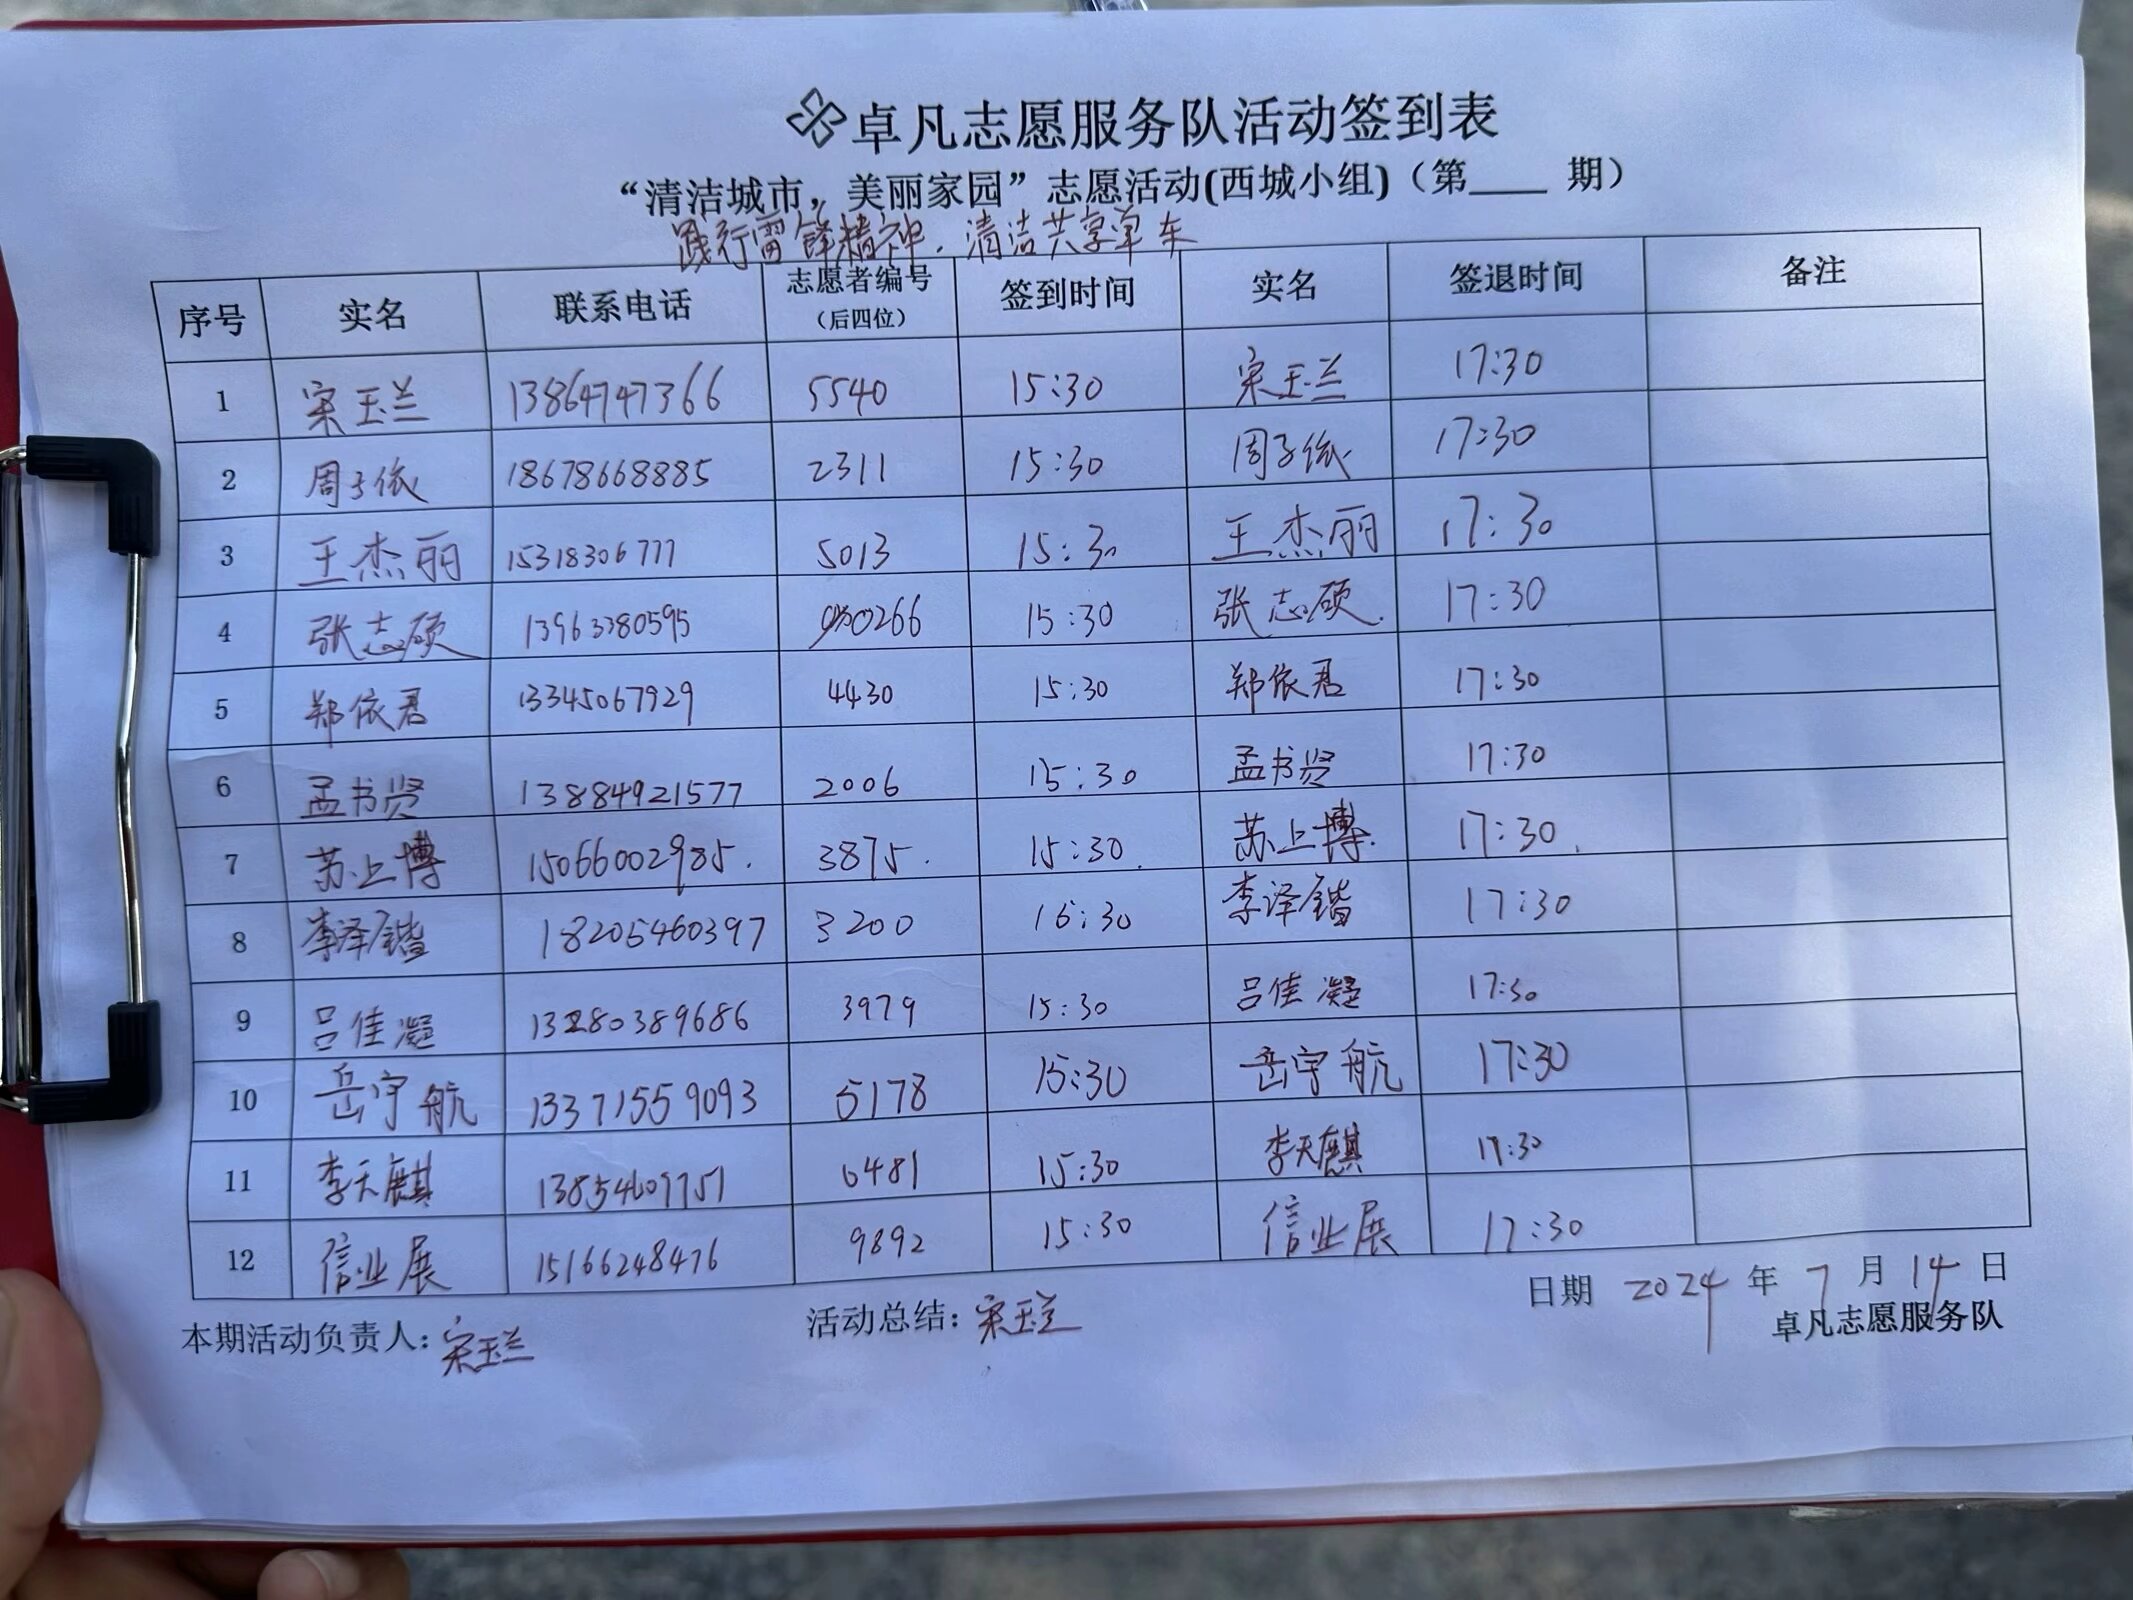 卓凡志愿服务队活动签到表
“清洁城市，美丽家园”志愿活动(西城小组)（第____ 期）
践行雷锋精神，清洁共享单车
序号 实名 联系电话 志愿者编号（后四位） 签到时间 实名 签退时间 备注
1 宋玉兰 13864747366 5540 15:30 宋玉兰 17:30
2 周子依 18678668885 2311 15:30 周子依 17:30
3 王杰丽 15318306777 5013 15:30 王杰丽 17:30
4 张志硕 13963380595 0266 15:30 张志硕 17:30
5 郑依君 13345067929 4430 15:30 郑依君 17:30
6 孟书贤 13884921577 2006 15:30 孟书贤 17:30
7 苏上博 15066002985. 3875. 15:30. 苏上博. 17:30.
8 李泽锴 18205460397 3200 15:30 李泽锴 17:30
9 吕佳凝 13280389686 3979 15:30 吕佳凝 17:30
10 岳宇航 13371559093 5178 15:30 岳宇航 17:30
11 李天麒 6481 15:30 李天麒 17:30
12 信业展 15166248476 9892 15:30 信业展 17:30
日期 2024 年 7 月 14 日
本期活动负责人：宋玉兰 活动总结：宋玉兰 卓凡志愿服务队